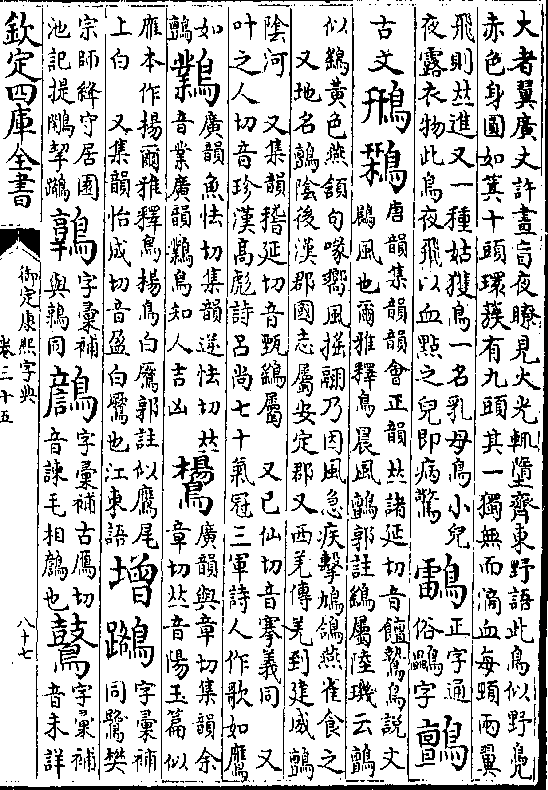 大者翼廣丈許晝盲夜瞭見火光輒墮齊東野語此鳥似野鳧
赤色身圓如箕十頭環簇有九頭其一獨無而滴血每頸兩翼
飛則𠀤進又一種姑獲鳥一名乳母鳥小兒
夜露衣物此鳥夜飛以血點之兒即病驚
正字通
俗鸓字
鸇
古文
唐韻集韻韻會正韻𠀤諸延切音饘鷙鳥說文
鷐風也爾雅釋鳥晨風鸇郭註鷂屬陸璣云鸇
似鷂黃色燕頷句喙嚮風搖翮乃因風急疾擊鳩鴿燕雀食之
又地名鸇陰後漢郡國志屬安定郡又西羌傳羌到建威鸇
陰河 又集韻稽延切音甄鷂屬 又已仙切音搴義同 又
叶之人切音珍漢高彪詩呂尚七十氣冠三軍詩人作歌如鷹
如
鸇
鸈
廣韻魚怯切集韻逆怯切𠀤
音業廣韻鸈鳥知人吉凶
鸉
廣韻與章切集韻余
章切𠀤音陽玉篇似
鴈本作揚爾雅釋鳥揚鳥白鷹郭註似鷹尾
上白 又集韻怡成切音盈白鷹也江東語
增
字彙補
同鷺樊
宗師絳守居園
池記提鷳挈鷺
字彙補
與鶉同
字彙補古鴈切
音諫毛相也
字彙補
音未詳
欽定四庫全書
御定康熙字典
卷三十五
八十七